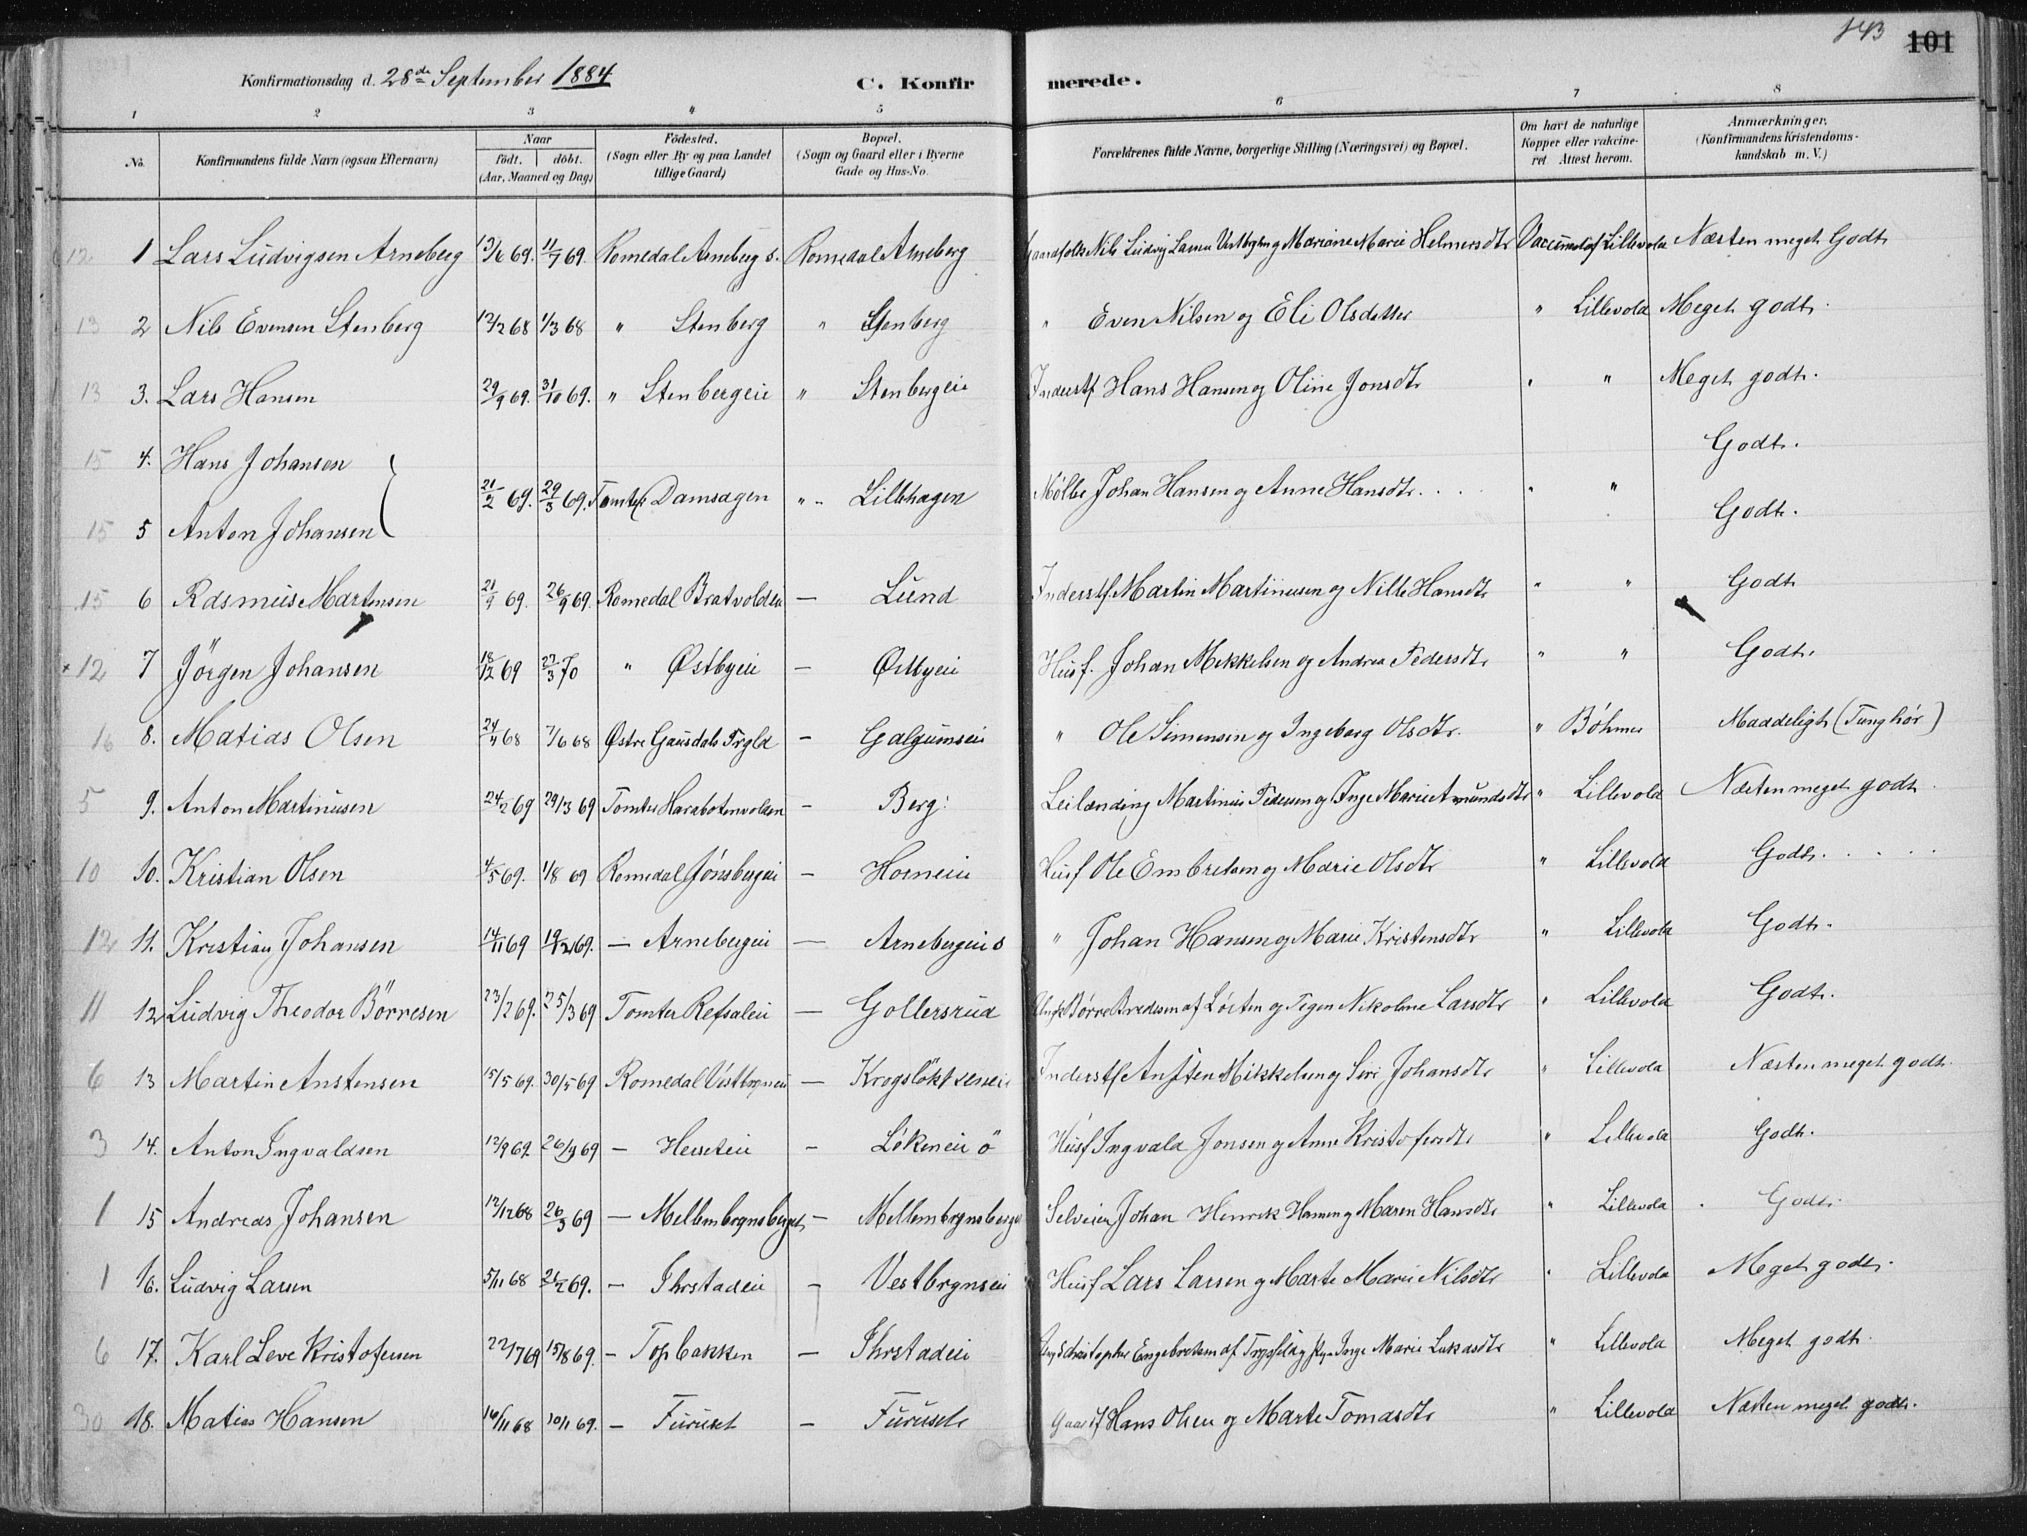 143 101
Konfirmationsdag d. 28de September 1884 C. Konfirmerede.
1 2 3 4 5 6 7 8
No. Konfirmandens fulde Navn (ogsaa Efternavn) Naar født. døbt. (Aar, Maaned og Dag) Fødested. (Sogn eller By og paa Landet tillige Gaard) Bopæl. (Sogn og Gaard eller i Byerne Gade og Hus-No. Forældrenes fulde Navne, borgerlige Stilling (Næringsvei) og Bopæl. Om havt de naturlige Kopper eller vakcineret Attest herom. Anmærkninger. (Konfirmandens Kristendomskundskab m. V.)
12 1 Lars Ludvigsen Arneberg 13/6 69. 11/7 69. Romedal Arneberg s. Romedal Arneberg Gaardfolk Nils Ludvig Larsen Vestbyn og Mariane Marie Helmersdtr Vaccineret af Lillevold Næsten meget Godt
13 2 Nils Evensen Stenberg 12/2 68 1/3 68 " Stenberg " Stenberg " Even Nilsen og Eli Olsdatter " Lillevold Meget godt.
13 3. Lars Hansen 29/9 69. 31/10 69. " Stenbergeie " Stenbergeie Inderstf Hans Hansen og Oline Jonsdtr " " Meget godt.
15 4. Hans Johansen Godt.
21/2 69. 29/3 69. Tomter Damsagen " Lillehagen Mølbe Johan Hansen og Anne Hansdtr. " "
15 5 Anton Johansen Godt.
15 6 Rasmus Martinsen 21/9 69. 26/9 69. Romedal Bratvoldeie — Lund Inderstf. Martin Martinusen og Nille Hansdtr " " Godt
12 7 Jörgen Johansen 18/12 69 27/3 70 " Østbyeie — Østbyeie Husf. Johan Mikkelsen og Andrea Pedersdtr " " Godt.
16 8. Matias Olsen 24/4 68 7/6 68 Østre Gausdals — Galgumseie " Ole Simensen og Ingeborg Olsdtr. " Böhmer Maadeligt (Tunghør)
5 9. Anton Martinusen 24/2 69 29/3 69 Tomter Harabotenvolden — Berg Leilænding Martinus Pedersen og Inge Marie Amundsdtr " Lillevold Næsten meget godt.
10 10. Kristian Olsen 4/5 69. 1/8 69 Romedal Jönsbergeie — Horneie Husf Ole Embretsen og Marie Olsdtr " Lillevold Godt.
12 11. Kristian Johansen 14/11 69 19/12 69. — Arnebergeie — Arnebergeie s " Johan Hansen og Marie Kristensdtr " Lillevold Godt.
11 12 Ludvig Theodor Börresen 23/2 69. 25/3 69 Tomter Refsaleie — Gollersrud Ungk Börre Bredesen af Löiten og Pigen Nikoline Larsdtr " Lillevold Godt.
6 13 Martin Anstensen 15/5 69. 30/5 69 Romedal Vestbyneie — Inderstf Ansten Mikkelsen og Siri Johansdtr " Lillevold Næsten meget godt.
3 14. Anton Ingvaldsen 12/9 69. 26/9 69 — — Lökeneie ö Husf Ingvald Jonsen og Anne Kristofersdtr " Lillevold Godt.
1 15 Andreas Johansen 12/12 68 26/3 69 — Mellembrynsberget — Mellembrynsberget Selveier Johan Henrik Hansen og Maren Hansdtr " Lillevold Godt.
1 16. Ludvig Larsen 5/11 68 21/2 69. — Ihrstadeie — Vestbrynseie Husf Lars Larsen og Marte Marie Nilsdtr " Lillevold Meget godt.
6 17. Karl Leve Kristofersen 22/7 69 15/8 69. — Topbakken — Ihrstadeie Christopher Engebretsen af Trysil og Inge Marie Lukasdtr " Lillevold Meget godt.
30 18. Matias Hansen 16/11 68 10/1 69. — Furuset — Furuset Gaardf Hans Olsen og Marte Tomasdtr " Lillevold Næsten meget godt.